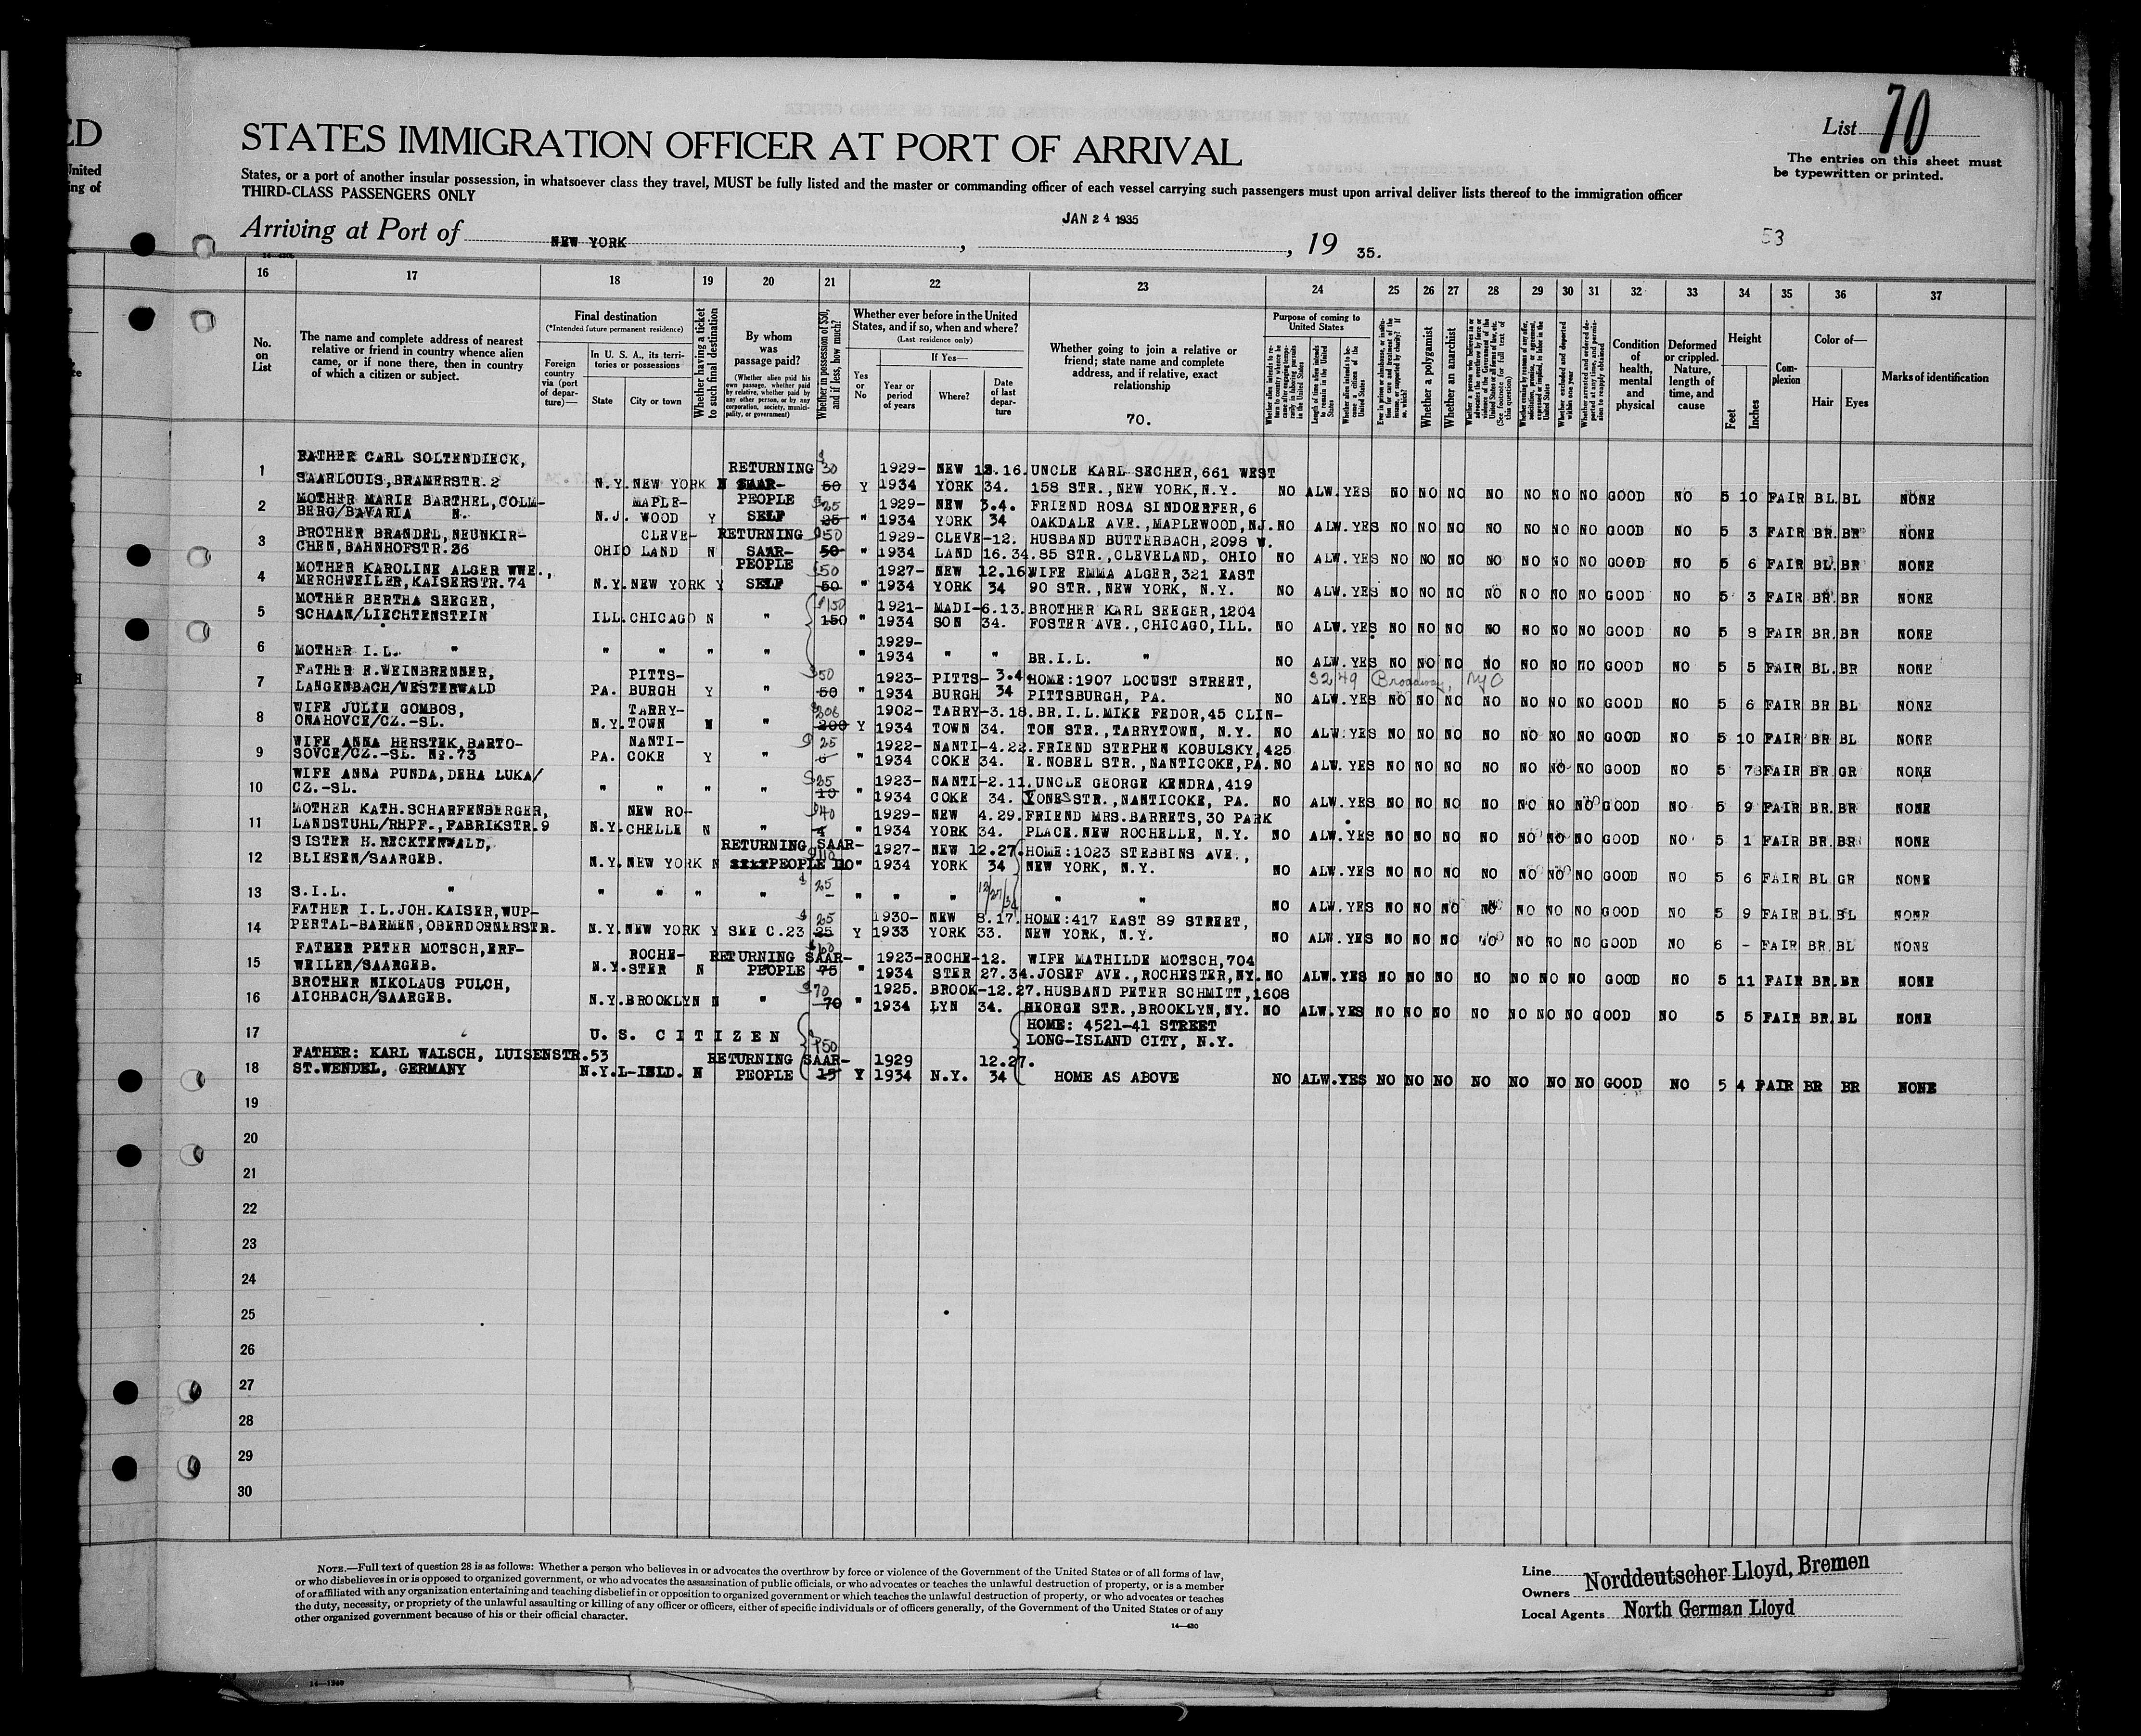 ED
United
ing of
List 70
STATES IMMIGRATION OFFICER AT PORT OF ARRIVAL
The entries on this sheet must
be typewritten or printed.
States, or a port of another insular possession, in whatsoever class they travel, MUST be fully listed and the master or commanding officer of each vessel carrying such passengers must upon arrival deliver lists thereof to the immigration officer
THIRD-CLASS PASSENGERS ONLY
JAN 24 1935
Arriving at Port of NEW YORK , , 19 35.
53
16 17 18 19 20 21 22 23 24 25 26 27 28 29 30 31 32 33 34 35 36 37
No. on List
The name and complete address of nearest relative or friend in country whence alien came, or if none there, then in country of which a citizen or subject.
Final destination
(*Intended future permanent residence)
Foreign country via (port of departure)—
In U. S. A., its territories or possessions
State
City or town
Whether having a ticket to such final destination
By whom was passage paid?
(Whether alien paid his own passage, whether paid by relative, whether paid by any other person, or by any corporation, society, municipality, or government)
Whether in possession of $50, and if less, how much?
Whether ever before in the United States, and if so, when and where?
(Last residence only)
Yes or No
If Yes—
Year or period of years
Where?
Date of last departure
Whether going to join a relative or friend; state name and complete address, and if relative, exact relationship
70.
Purpose of coming to United States
Whether a polygamist
Whether an anarchist
Condition of health, mental and physical
Deformed or crippled. Nature, length of time, and cause
Height
Feet
Inches
Complexion
Color of—
Hair
Eyes
Marks of identification
1 FATHER CARL SOLTENDIECK, RETURNING $30 1929- NEW 12.16. UNCLE KARL SECHER, 661 WEST
SAARLOUIS, BRAMERSTR.2 N.Y. NEW YORK N SAAR- 50 Y 1934 YORK 34. 158 STR., NEW YORK, N.Y. NO ALW. YES NO NO NO NO NO NO NO GOOD NO 5 10 FAIR BL. BL NONE
2 MOTHER MARIE BARTHEL, COLM- MAPLE- PEOPLE $25 1929- NEW 3.4. FRIEND ROSA SINDOERFER, 6
BERG/BAVARIA N. N.J. WOOD Y SELF 25 " 1934 YORK 34 OAKDALE AVE., MAPLEWOOD, N.J. NO ALW. YES NO NO NO NO NO NO NO GOOD NO 5 3 FAIR BR. BR NONE
3 BROTHER BRANDEL, NEUNKIR- CLEVE- RETURNING $50 1929- CLEVE- 12. HUSBAND BUTTERBACH, 2098 W.
CHEN, BAHNHOFSTR.36 OHIO LAND N SAAR- 50 " 1934 LAND 16.34. 85 STR., CLEVELAND, OHIO NO ALW. YES NO NO NO NO NO NO NO GOOD NO 5 6 FAIR BL. BR NONE
4 MOTHER KAROLINE ALGER WWE., PEOPLE $50 1927- NEW 12.16 WIFE EMMA ALGER, 321 EAST
MERCHWEILER, KAISERSTR.74 N.Y. NEW YORK Y SELF 50 " 1934 YORK 34 90 STR., NEW YORK, N.Y. NO ALW. YES NO NO NO NO NO NO NO GOOD NO 5 3 FAIR BR. BR NONE
5 MOTHER BERTHA SEEGER, $150 1921- MADI- 6.13. BROTHER KARL SEEGER, 1204
SCHAAN/LIECHTENSTEIN ILL. CHICAGO N " 150 " 1934 SON 34. FOSTER AVE., CHICAGO, ILL. NO ALW. YES NO NO NO NO NO NO NO GOOD NO 5 8 FAIR BR. BR NONE
6 MOTHER I.L. " " " " " " 1929- 1934 " " BR.I.L. " NO ALW. YES NO NO NO NO NO NO NO GOOD NO 5 5 FAIR BL. BR NONE
7 FATHER E. WEINBRENNER, PITTS- $50 1923- PITTS- 3.4 HOME: 1907 LOCUST STREET, 3249 Broadway, NYC
LANGENBACH/WESTERWALD PA. BURGH Y " 50 " 1934 BURGH 34 PITTSBURGH, PA. NO ALW. YES NO NO NO NO NO NO NO GOOD NO 5 6 FAIR BR BL NONE
8 WIFE JULIE GOMBOS, TARRY- $206 1902- TARRY- 3.18. BR.I.L. MIKE FEDOR, 45 CLIN-
ONAHOVCE/CZ.-SL. N.Y. TOWN N " 200 Y 1934 TOWN 34. TON STR., TARRYTOWN, N.Y. NO ALW. YES NO NO NO NO NO NO NO GOOD NO 5 10 FAIR BR BL NONE
9 WIFE ANNA HERSTEK, BARTO- NANTI- $25 1922- NANTI- 4.22. FRIEND STEPHEN KOBULSKY, 425
SOVCE/CZ.-SL. No.73 PA. COKE Y " " 1934 COKE 34. E. NOBEL STR., NANTICOKE, PA. NO ALW. YES NO NO NO NO NO NO NO GOOD NO 5 7 FAIR BR GR NONE
10 WIFE ANNA PUNDA, DEHA LUKA/ $25 1923- NANTI- 2.11. UNCLE GEORGE KENDRA, 419
CZ.-SL. " " " " 10 " 1934 COKE 34. STR., NANTICOKE, PA. NO ALW. YES NO NO NO NO NO NO NO GOOD NO 5 9 FAIR BR. BR NONE
11 MOTHER KATH. SCHARFENBERGER, NEW RO- $40 1929- NEW 4.29. FRIEND MRS. BARRETS, 30 PARK
LANDSTUHL/RHPF., FABRIKSTR.9 N.Y. CHELLE N " " 1934 YORK 34. PLACE. NEW ROCHELLE, N.Y. NO ALW. YES NO NO NO NO NO NO NO GOOD NO 5 1 FAIR BR. BR NONE
12 SISTER H. RECKTENWALD, RETURNING SAAR- 1927- NEW 12.27. HOME: 1023 STEBBINS AVE.,
BLIESEN/SAARGEB. N.Y. NEW YORK N SELF PEOPLE " 1934 YORK 34 NEW YORK, N.Y. NO ALW. YES NO NO NO NO NO NO NO GOOD NO 5 6 FAIR BL GR NONE
13 S.I.L. " " " " " $25 - " " " 12/27/34 " " NO ALW. YES NO NO NO NO NO NO NO GOOD NO 5 9 FAIR BL BL NONE
14 FATHER I.L. JOH. KAISER, WUP- $25 1930- NEW 8.17. HOME: 417 EAST 89 STREET,
PERTAL-BARMEN, OBERDORNERSTR. N.Y. NEW YORK Y SEE C.23 25 Y 1933 YORK 33. NEW YORK, N.Y. NO ALW. YES NO NO NO NO NO NO NO GOOD NO 6 - FAIR BR. BL NONE
15 FATHER PETER MOTSCH, ERF- ROCHE- RETURNING SAAR- 1923- ROCHE- 12. WIFE MATHILDE MOTSCH, 704
WEILER/SAARGEB. N.Y. STER N PEOPLE 75 " 1934 STER 27.34. JOSEF AVE., ROCHESTER, NY. NO ALW. YES NO NO NO NO NO NO NO GOOD NO 5 11 FAIR BR. BR NONE
16 BROTHER NIKOLAUS PULCH, $70 1925. BROOK- 12.27. HUSBAND PETER SCHMITT, 1608
AICHBACH/SAARGEB. N.Y. BROOKLYN N " 70 " 1934 LYN 34. GEORGE STR., BROOKLYN, NY. NO ALW. YES NO NO NO NO NO NO NO GOOD NO 5 5 FAIR BR. BL NONE
17 U. S. CITIZEN HOME: 4521-41 STREET
LONG-ISLAND CITY, N.Y.
18 FATHER: KARL WALSCH, LUISENSTR.53 RETURNING SAAR- $50 1929 12.27.
ST. WENDEL, GERMANY N.Y. L-ISLD. N PEOPLE 15 Y 1934 N.Y. 34 HOME AS ABOVE NO ALW. YES NO NO NO NO NO NO NO GOOD NO 5 4 FAIR BR BR NONE
19
20
21
22
23
24
25
26
27
28
29
30
NOTE.—Full text of question 28 is as follows: Whether a person who believes in or advocates the overthrow by force or violence of the Government of the United States or of all forms of law,
or who disbelieves in or is opposed to organized government, or who advocates the assassination of public officials, or who advocates or teaches the unlawful destruction of property, or is a member
of or affiliated with any organization entertaining and teaching disbelief in or opposition to organized government or which teaches the unlawful destruction of property, or who advocates or teaches
the duty, necessity, or propriety of the unlawful assaulting or killing of any officer or officers, either of specific individuals or of officers generally, of the Government of the United States or of any
other organized government because of his or their official character.
14—430
Line Norddeutscher Lloyd, Bremen
Owners
Local Agents North German Lloyd